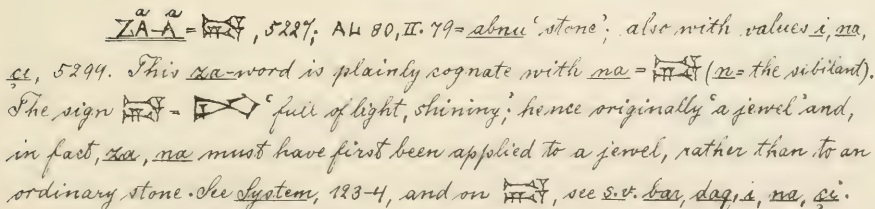 ZAᵃ-Aᵃ = 𒉌𒌓, 5227; AL 80, II. 79 = abnu ‘stone’; also with values i, na,
çi, 5299. This za-word is plainly cognate with na = (n = the sibilant).
The sign = ‘full of light, shining’; hence originally ‘a jewel’ and,
in fact, za, na must have first been applied to a jewel, rather than to an
ordinary stone. See System, 123-4, and on , see s.v. bar, dag, i, na, çi.